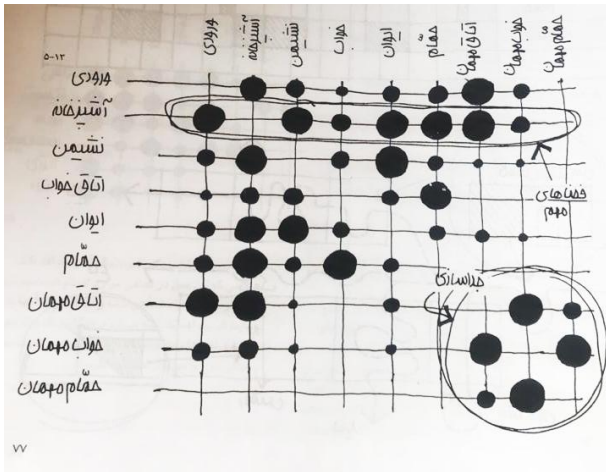 ورودی
آشپزخانه
نشیمن
خواب
ایوان
حمّام
اتاق مهمان
خواب مهمان
حمّام مهمان
۵-۱۲
ورودی
آشپزخانه
نشیمن
اتاق خواب
ایوان
حمّام
اتاق مهمان
خواب مهمان
حمّام مهمان
فضاهای
مهم
جداسازی
۷۷